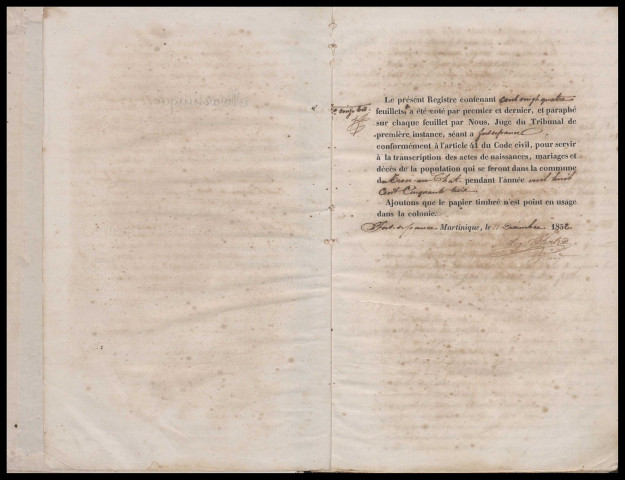 Le présent Registre contenant cent vingt quatre
feuillets, a été coté par premier et dernier, et paraphé
sur chaque feuillet par Nous, Juge du Tribunal de
première instance, séant a fort de france
conformément à l'article 41 du Code civil, pour servir
à la transcription des actes de naissances, mariages et
décès de la population qui se feront dans la commune
du Trou au Chat pendant l'année mil huit
Cent Cinquante trois.
Ajoutons que le papier timbré n'est point en usage
dans la colonie.
Fort-de-france Martinique, le Décembre 1852